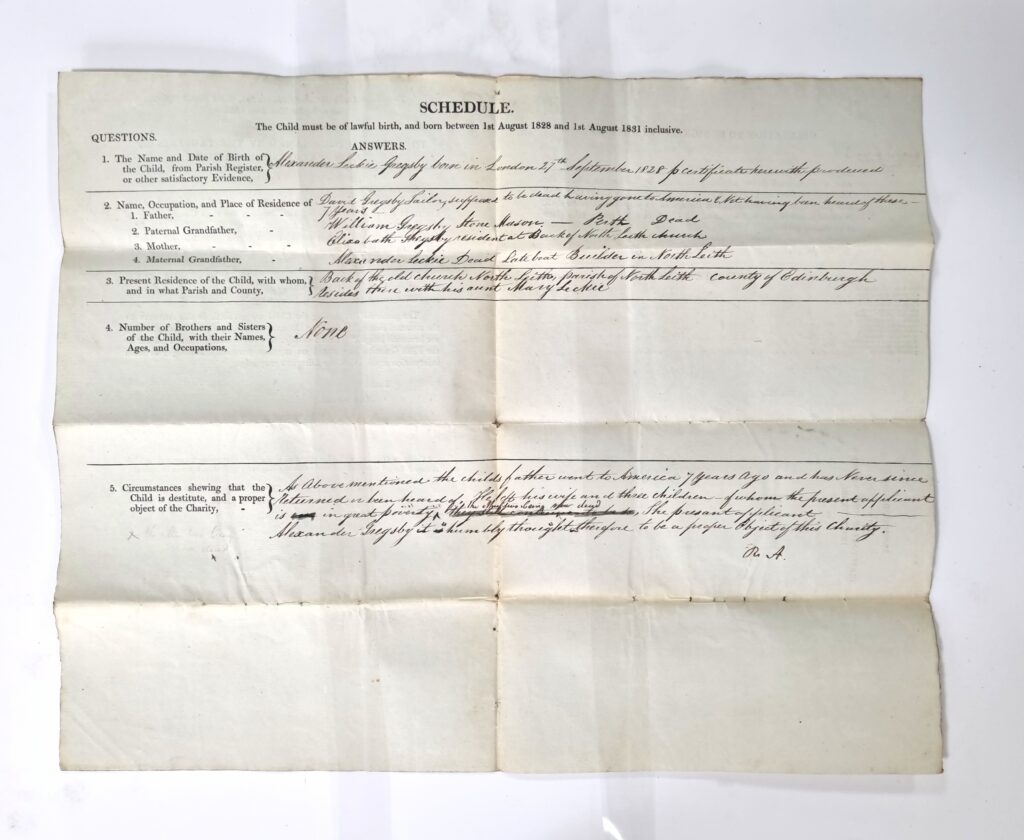 SCHEDULE.
The Child must be of lawful birth, and born between 1st August 1828 and 1st August 1831 inclusive.
QUESTIONS.
ANSWERS.
1. The Name and Date of Birth of the Child, from Parish Register, or other satisfactory Evidence,
Alexander Leckie Gregsby born in London 27th September 1828 p certificate herewith produced
2. Name, Occupation, and Place of Residence of
1. Father, - -
David Gregsby Sailor, supposed to be dead having gone to America & Not having been heard of these
7 Years
2. Paternal Grandfather, -
William Gregsby Stone Mason — Perth Dead
3. Mother, - -
Elizabath Gregsby resident at Back of North Leith church
4. Maternal Grandfather, -
Alexander Leckie Dead Late boat Builder in North Leith
3. Present Residence of the Child, with whom, and in what Parish and County,
Back of the old church North Leith, parish of North Leith county of Edinburgh
resides there with his aunt Mary Leckie
4. Number of Brothers and Sisters of the Child, with their Names, Ages, and Occupations,
None
5. Circumstances shewing that the Child is destitute, and a proper object of the Charity, -
As Above mentioned the childs father went to America 7 Years Ago and has Never since
Returned or been heard of, He left his wife and three children of whom the present applicant
is in great poverty, being now dead The present applicant
Alexander Gregsby it is humbly thought therefore to be a proper Object of this Charity.
R. A.